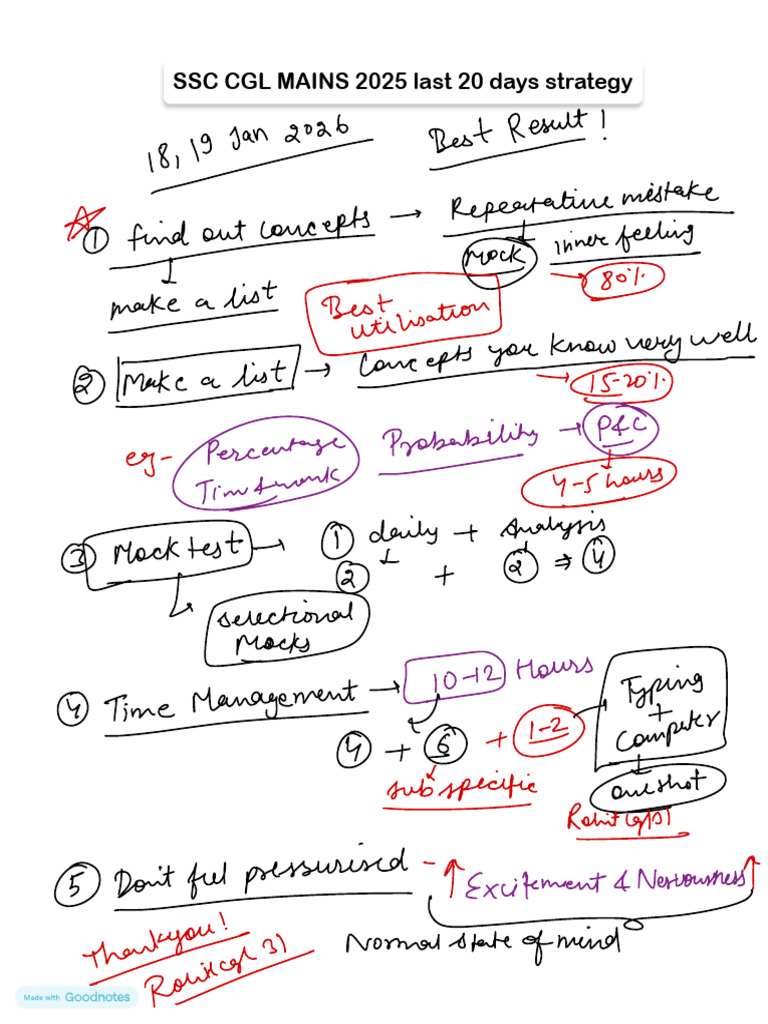 SSC CGL MAINS 2025 last 20 days strategy
18, 19 Jan 2026
Best Result!
① find out concepts → Repeatative mistake
Mock inner feeling
80%
make a list
Best
utilisation
② Make a list → Concepts you know very well
15-20%
eg- Percentage
Time & work
Probability → P&C
4-5 hours
③ Mock test → ① daily + Analysis
② + ② ⇒ ④
Selectional
Mocks
④ Time Management → 10-12 Hours
④ + ⑥ + 1-2
Typing
+
Computer
sub specific
oneshot
Rohit
⑤ Don't feel pressurised - ↑ Excitement & Nervousness ↑
Normal state of mind
Thankyou!
Rohit (cgl 3)
Made with Goodnotes